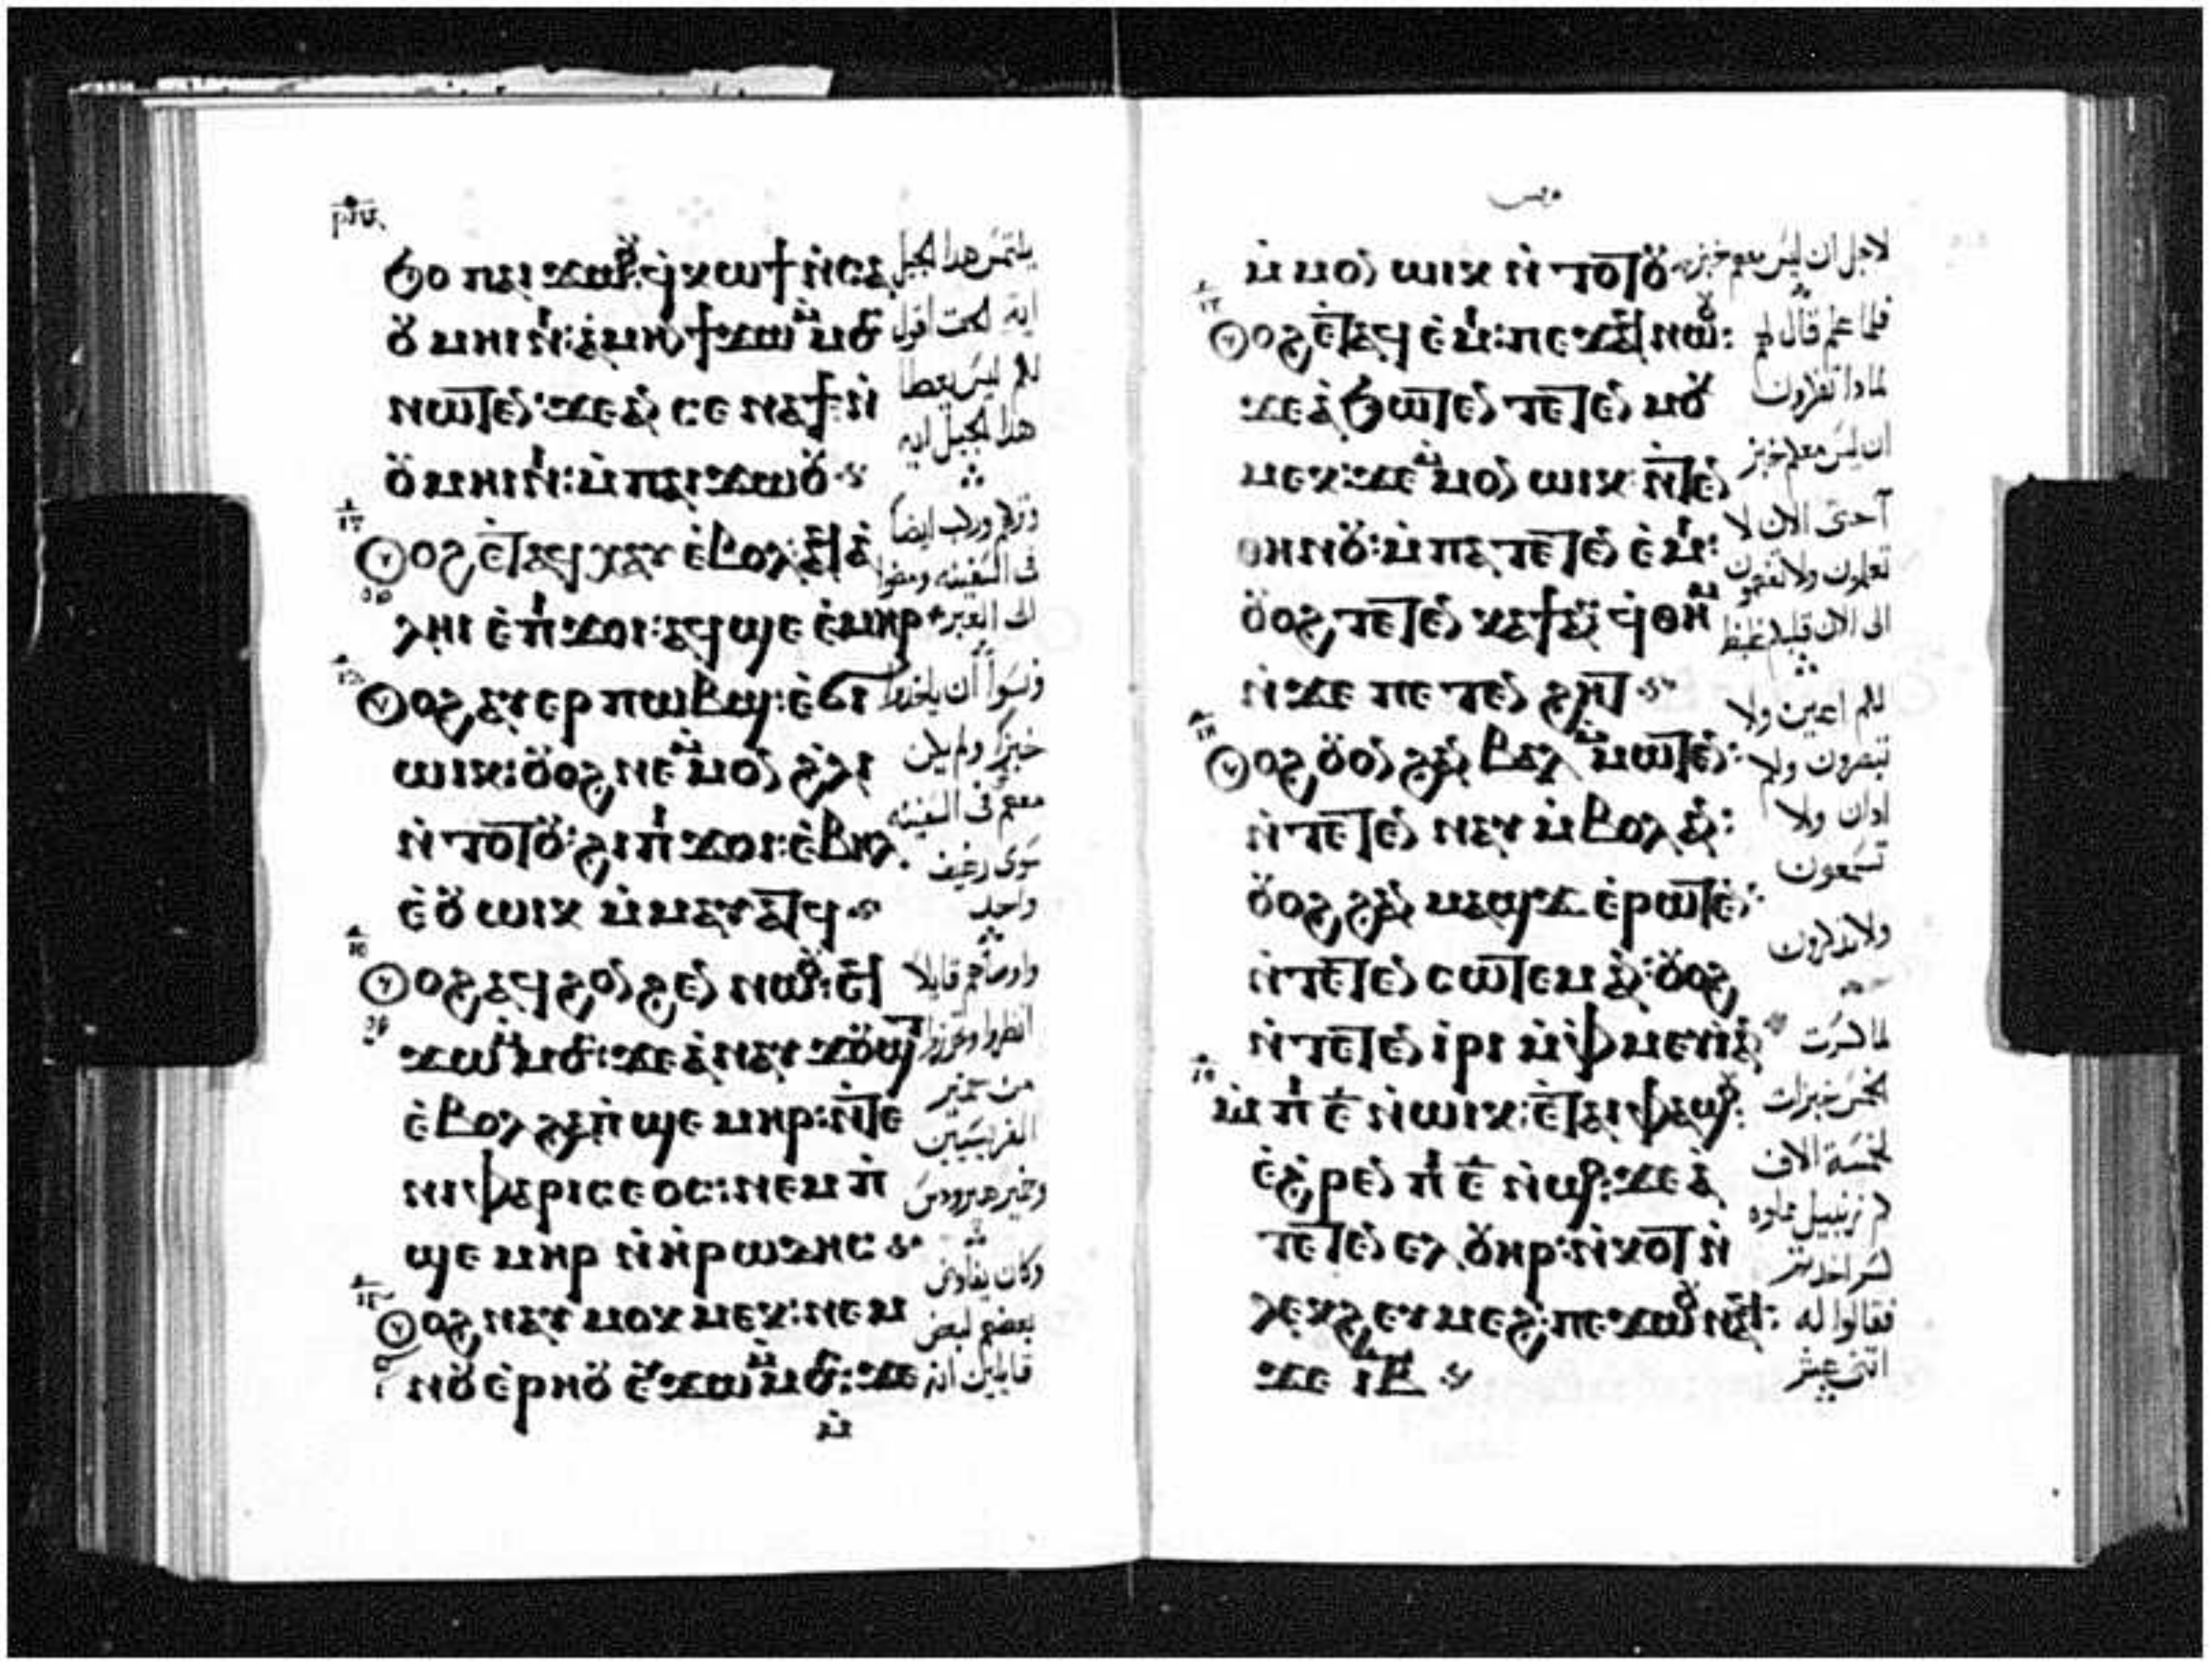 ⲑⲟ ⲡⲁⲓ ϫⲱⲟⲩ: ϥ̇ⲕⲱϯ ⲛ̇ⲥⲁ
ⲟⲩ ⲙⲏⲓⲛⲓ: ⲁ̇ⲙⲏⲛ ϯϫⲱ ⲙ̇ⲙⲟⲥ
ⲛⲱⲧⲉⲛ: ϫⲉ ⲁⲛ ⲥⲉ ⲛⲁϯ ⲛ̇
ⲟⲩ ⲙⲏⲓⲛⲓ: ⲙ̇ⲡⲁⲓ ϫⲱⲟⲩ
ⲟⲩⲟϩ ⲉ̇ⲧⲁϥ ⲭⲁⲩ ⲉ̇ⲃⲟⲗ: ⲁϥⲁ̇
ⲗⲏⲓ ⲉ̇ⲡϫⲟⲓ: ⲁϥϣⲉ ⲉ̇ⲙⲏⲣ
ⲟⲩⲟϩ ⲁⲩ ⲉⲣ ⲡⲱⲃϣ: ⲉ̇ϭⲓ
ⲱⲓⲕ: ⲟⲩⲟϩ ⲛⲉ ⲙ̇ⲙⲟⲛ ϩ̇ⲗⲓ
ⲛ̇ⲧⲟⲧⲟⲩ: ϩⲓ ⲡϫⲟⲓ: ⲉ̇ⲃⲏⲗ
ⲉ̇ⲟⲩ ⲱⲓⲕ ⲙ̇ⲙⲁⲩⲁⲧϥ
ⲟⲩⲟϩ ⲁϥ ϩⲟⲛϩⲉⲛ ⲛⲱⲟⲩ: ⲉϥ
ϫⲱ ⲙ̇ⲙⲟⲥ: ϫⲉ ⲁ̇ⲛⲁⲩ ϫⲟⲩϣⲧ
ⲉ̇ⲃⲟⲗ ϩⲁ ⲡ̇ϣⲉ ⲙⲏⲣ: ⲛ̇ⲧⲉ
ⲛⲓ ⲫⲁⲣⲓⲥⲉⲟⲥ: ⲛⲉⲙ ⲡ̇
ϣⲉ ⲙⲏⲣ ⲛ̇ⲏ̇ⲣⲱⲇⲏⲥ
ⲟⲩⲟϩ ⲛⲁⲩ ⲙⲟⲕ ⲙⲉⲕ: ⲛⲉⲙ
ⲛⲟⲩ ⲉ̇ⲣⲏⲟⲩ ⲉⲩϫⲱ ⲙ̇ⲙⲟⲥ: ϫⲉ
ⲙ̇
يلتمس هدا الجيل
ايه الحق اقول
لكم ليس يعطا
هدا الجيل ايه
وتركهم وركب ايضا
فى السفينه ومضوا
الى العبر
ونسوا أن ياخذوا
خبزا ولم يكن
معهم فى السفينه
سوى رغيف
واحد
واوصاهم قايلا
انظروا وتحرزوا
من خمير
الفريسيين
وخمير هيرودس
وكان يفاوض
بعضهم لبعض
قايلين انه
ⲙ̇ⲙⲟⲛ ⲱⲓⲕ ⲛ̇ⲧⲟⲧⲟⲩ
ⲟⲩⲟϩ ⲉ̇ⲧⲁϥ ⲉ̇ⲙⲓ: ⲡⲉϫⲁϥ ⲛⲱⲟⲩ:
ϫⲉ ⲁ̇ϭⲱⲧⲉⲛ ⲧⲉⲧⲉⲛ ⲙⲟⲕ
ⲙⲉⲕ: ϫⲉ ⲙ̇ⲙⲟⲛ ⲱⲓⲕ ⲛ̇ⲧⲉⲛ
ⲑⲏⲛⲟⲩ: ⲙ̇ⲡⲁⲧⲉⲧⲉⲛ ⲉ̇ⲙⲓ:
ⲟⲩⲟϩ ⲧⲉⲧⲉⲛ ⲕⲁϯ ⲁⲛ ϥ̇ⲑⲏⲙ
ⲛ̇ϫⲉ ⲡⲉⲧⲉⲛ ϩⲏⲧ
ⲟⲩⲟϩ ⲟⲩⲟⲛ ϩⲁⲛ ⲃⲁⲗ ⲙ̇ⲙⲱⲧⲉⲛ:
ⲛ̇ⲧⲉⲧⲉⲛ ⲛⲁⲩ ⲙ̇ⲃⲟⲗ ⲁⲛ:
ⲟⲩⲟϩ ϩⲁⲛ ⲙⲁϣϫ ⲉ̇ⲣⲱⲧⲉⲛ:
ⲛ̇ⲧⲉⲧⲉⲛ ⲥⲱⲧⲉⲙ ⲁⲛ: ⲟⲩⲟϩ
ⲛ̇ⲧⲉⲧⲉⲛ ⲓ̇ⲣⲓ ⲙ̇ⲫⲙⲉⲩⲓ̇ ⲁⲛ
ⲙ̇ⲡⲓ ⲉ̅ ⲛ̇ⲱⲓⲕ: ⲉ̇ⲧⲁⲓ ⲫⲁϣⲟⲩ:
ⲉ̇ϩ̇ⲣⲉⲛ ⲡⲓ ⲉ̅ ⲛ̇ϣⲟ: ϫⲉ ⲁ̇
ⲧⲉⲧⲉⲛ ⲉⲗ ⲟⲩⲏⲣ: ⲛ̇ⲕⲟⲧ ⲛ̇
ⲗⲉⲕϩ ⲉⲩ ⲙⲉϩ: ⲡⲉϫⲱⲟⲩ ⲛⲁϥ:
ϫⲉ ⲓ̅ⲃ̅
لاجل ان ليس معهم خبز
فلما علم قال لهم
لمادا تفكرون
ان ليس معكم خبز
آحتى الان لا
تعلمون ولا تفهمون
الى الان قلبكم غليظ
لكم اعين ولا
تبصرون ولا
ادان ولا
تسمعون
ولا تدكرون
لما كسرت
الخمس خبزات
لخمسة الاف
كم زنبيل مملوه
كسر اخدتم
فقالوا له
اثنى عشر